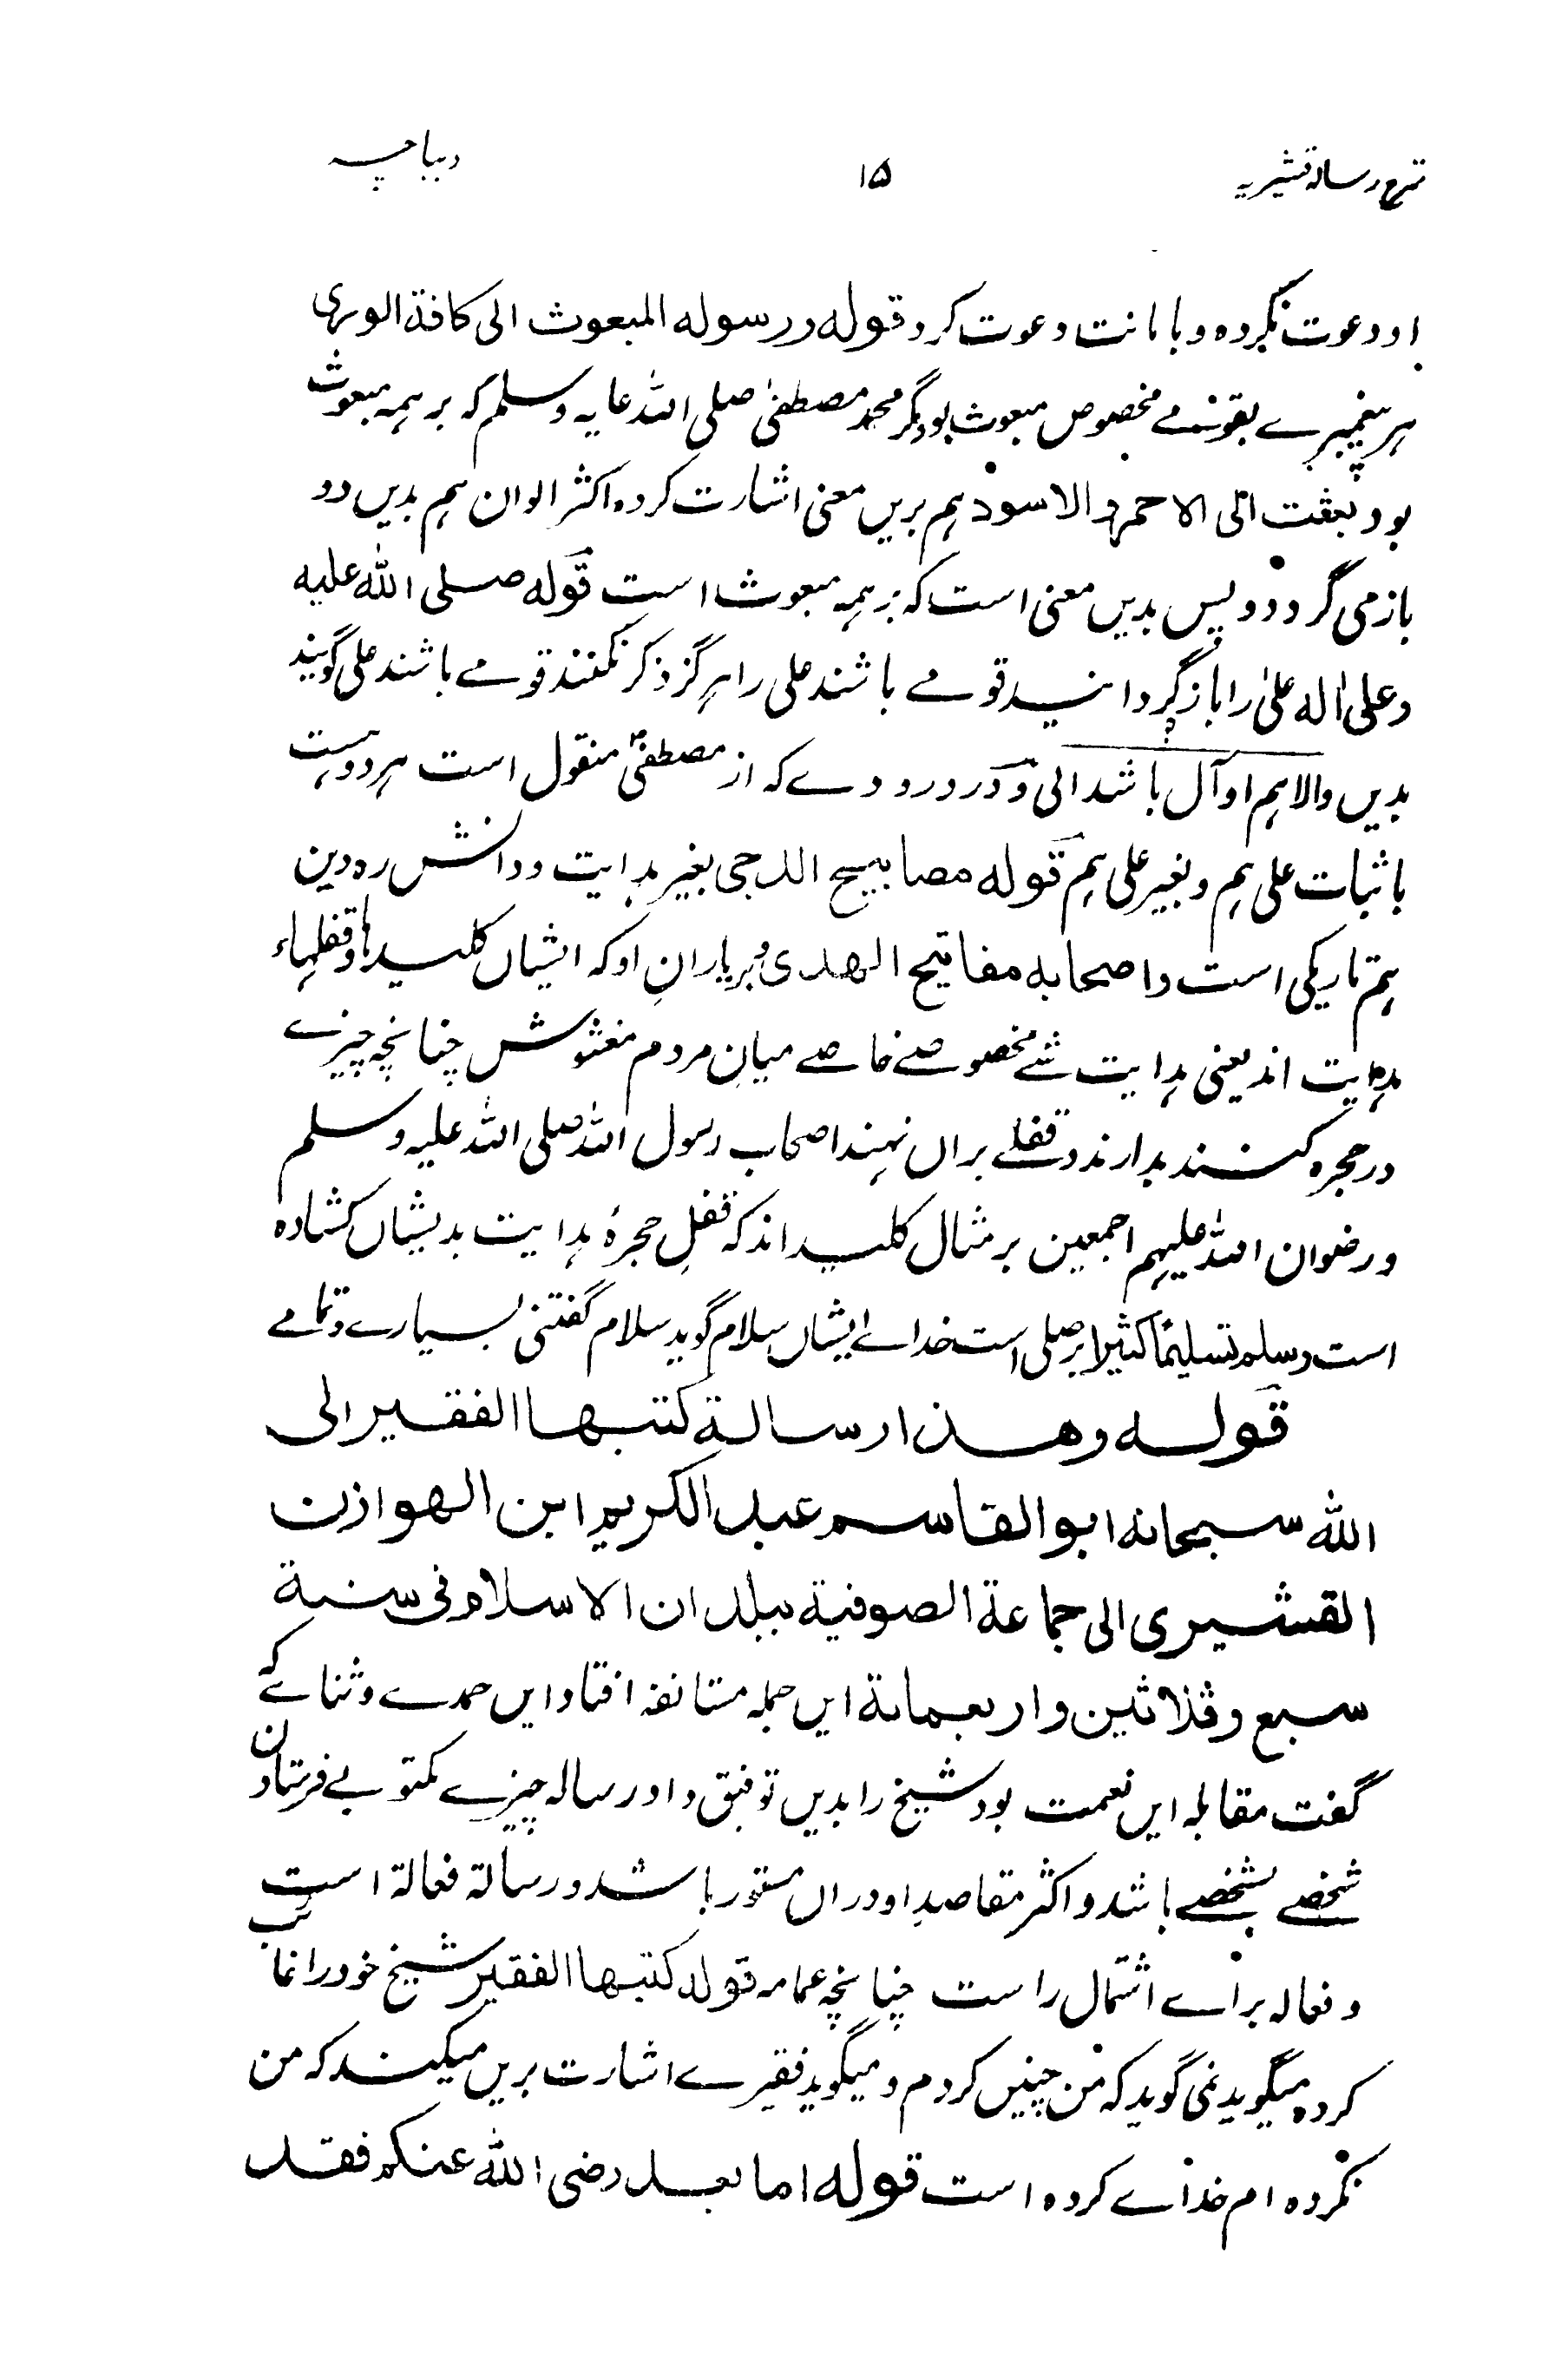 شرح رسالہ قشیریہ ۱۵ دیباچہ
او دعوت نکرده و با مانت دعوت کرد قوله ورسوله المبعوث الی کافة الوری
هر پیغمبرے بقومے مخصوص مبعوث بود مگر محمد مصطفیٰ صلی الله علیه وسلم که بر همه مبعوث
بود و بعثت الی الاحمر والاسود هم بریں معنی اشارت کرده اکثر الوان هم بدیں دو
باز می گردد و پس بدیں معنی است که بر همه مبعوث است قوله صلی الله علیه
وعلی اٰله علیٰ را باز گردانید قومے باشند علی را هرگز ذکر نکنند قومے باشند علی گویند
بدیں والا هم او آل باشد الی و در درودے که از مصطفیٰؐ منقول است هر دوست
با ثبات علی هم و بغیر علی هم قوله مصابیح الدجی بغیر هدایت و دانش ره دین
هم تاریکی است واصحابه مفاتیح الهدی و بر یارانِ او که ایشاں کلیدها و قفلهاء
هدایت اند یعنی هدایت شئے مخصوصے خاصے میانِ مردم مغشوش چنانچه چیزے
در حجره کنند بدارند و قفلے براں نهند اصحاب رسول الله صلی الله علیه وسلم
ورضوان الله علیهم اجمعین بر مثال کلید اند که قفلِ حجرهٔ هدایت بدیشاں کشاده
است وسلم تسلیماً کثیرا بر صلی است خداے بر ایشاں سلام گوید سلام گفتنی بسیارے و تمامے
قوله وهذا رسالة کتبها الفقیر الی
الله سبحانه ابو القاسم عبد الکریم ابن الهوازن
القشیری الی جماعة الصوفیة ببلدان الاسلام فی سنة
سبع وثلاثین واربعمائة ایں جمله مستانفه افتاد ایں حمدے و ثنائے که
گفت مقابله ایں نعمت بود شیخ را بدیں توفیق داد رساله چیزے مکتوبے فرستادن
شخصے بشخصے باشد و اکثر مقاصدِ او دراں مستور باشد و رسالة فعالة است
و فعاله براے اشتمال راست چنانچه عمامه قوله کتبها الفقیر شیخ خود را غائب
کرده میگوید نمی گوید که من چنیں کردم و میگوید فقیرے اشارت بریں میکند که من
نکرده ام خداے کرده است قوله اما بعد رضی الله عنکم فقد